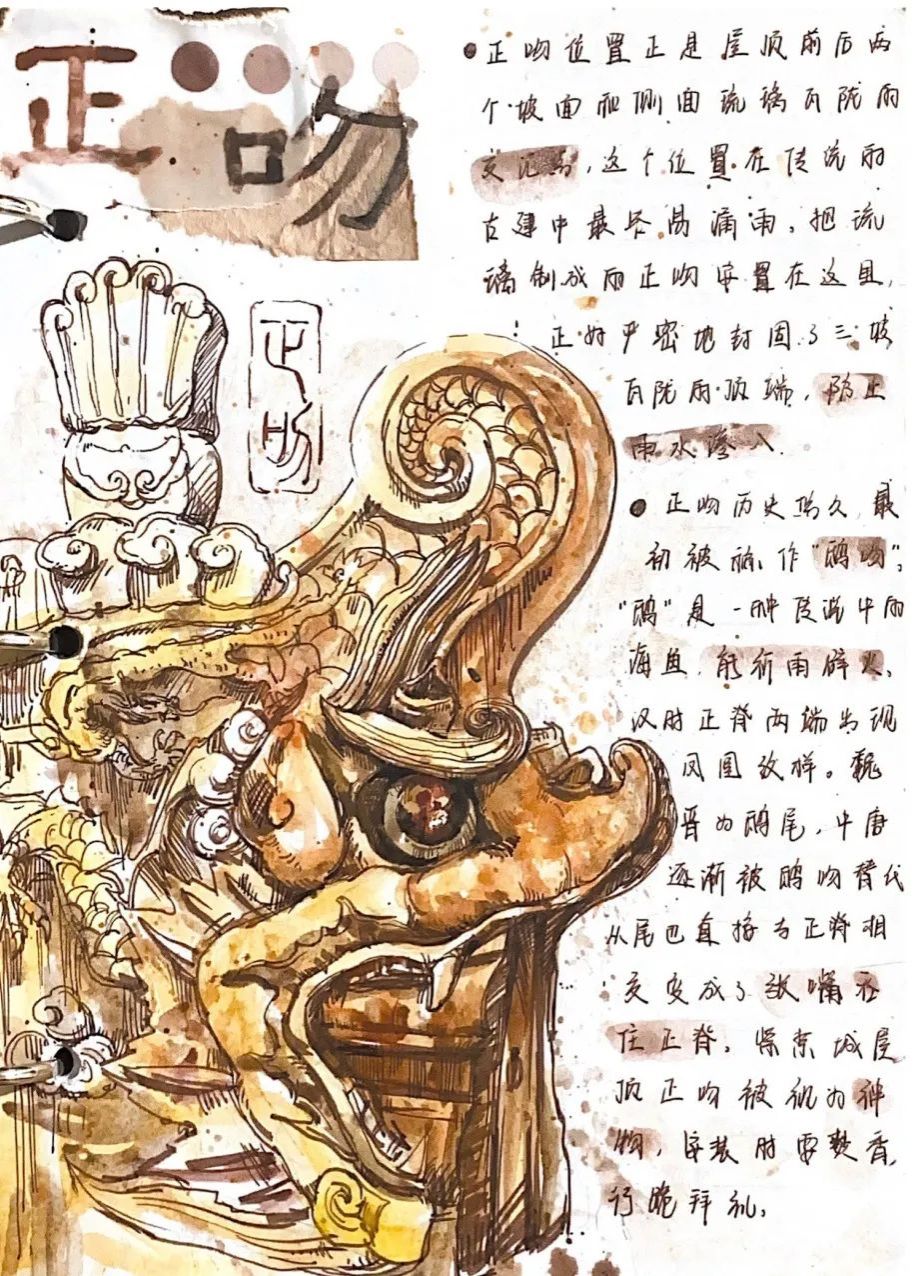 正吻
正吻
●正吻位置正是屋顶前后两
个坡面和侧面琉璃瓦陇的
交汇点,这个位置在传统的
古建中最容易漏雨。把琉
璃制成的正吻安置在这里,
正好严密地封固了三坡
瓦陇的顶端,防止
雨水渗入.
●正吻历史悠久,最
初被称作"鸱吻",
"鸱"是一种传说中的
海鱼,能祈雨辟火.
汉时正脊两端出现
凤凰纹样。魏
晋为鸱尾,中唐
逐渐被鸱吻替代
从尾巴直接与正脊相
交变成了张嘴吞
住正脊。紫禁城屋
顶正吻被视为神
物,安装时要焚香,
行跪拜礼。